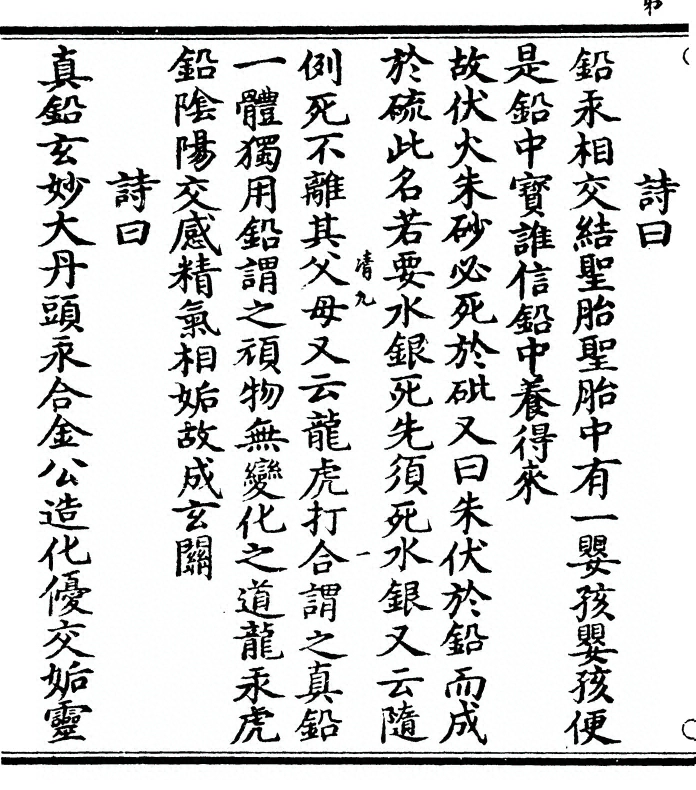 詩曰
鉛汞相交結聖胎聖胎中有一嬰孩嬰孩便
是鉛中寶誰信鉛中養得來
故伏火朱砂必死於砒又曰朱伏於鉛而成
於硫此名若要水銀死先須死水銀又云隨
清九
一
例死不離其父母又云龍虎打合謂之真鉛
一體獨用鉛謂之頑物無變化之道龍汞虎
鉛陰陽交感精氣相姤故成玄關
詩曰
真鉛玄妙大丹頭汞合金公造化優交姤靈